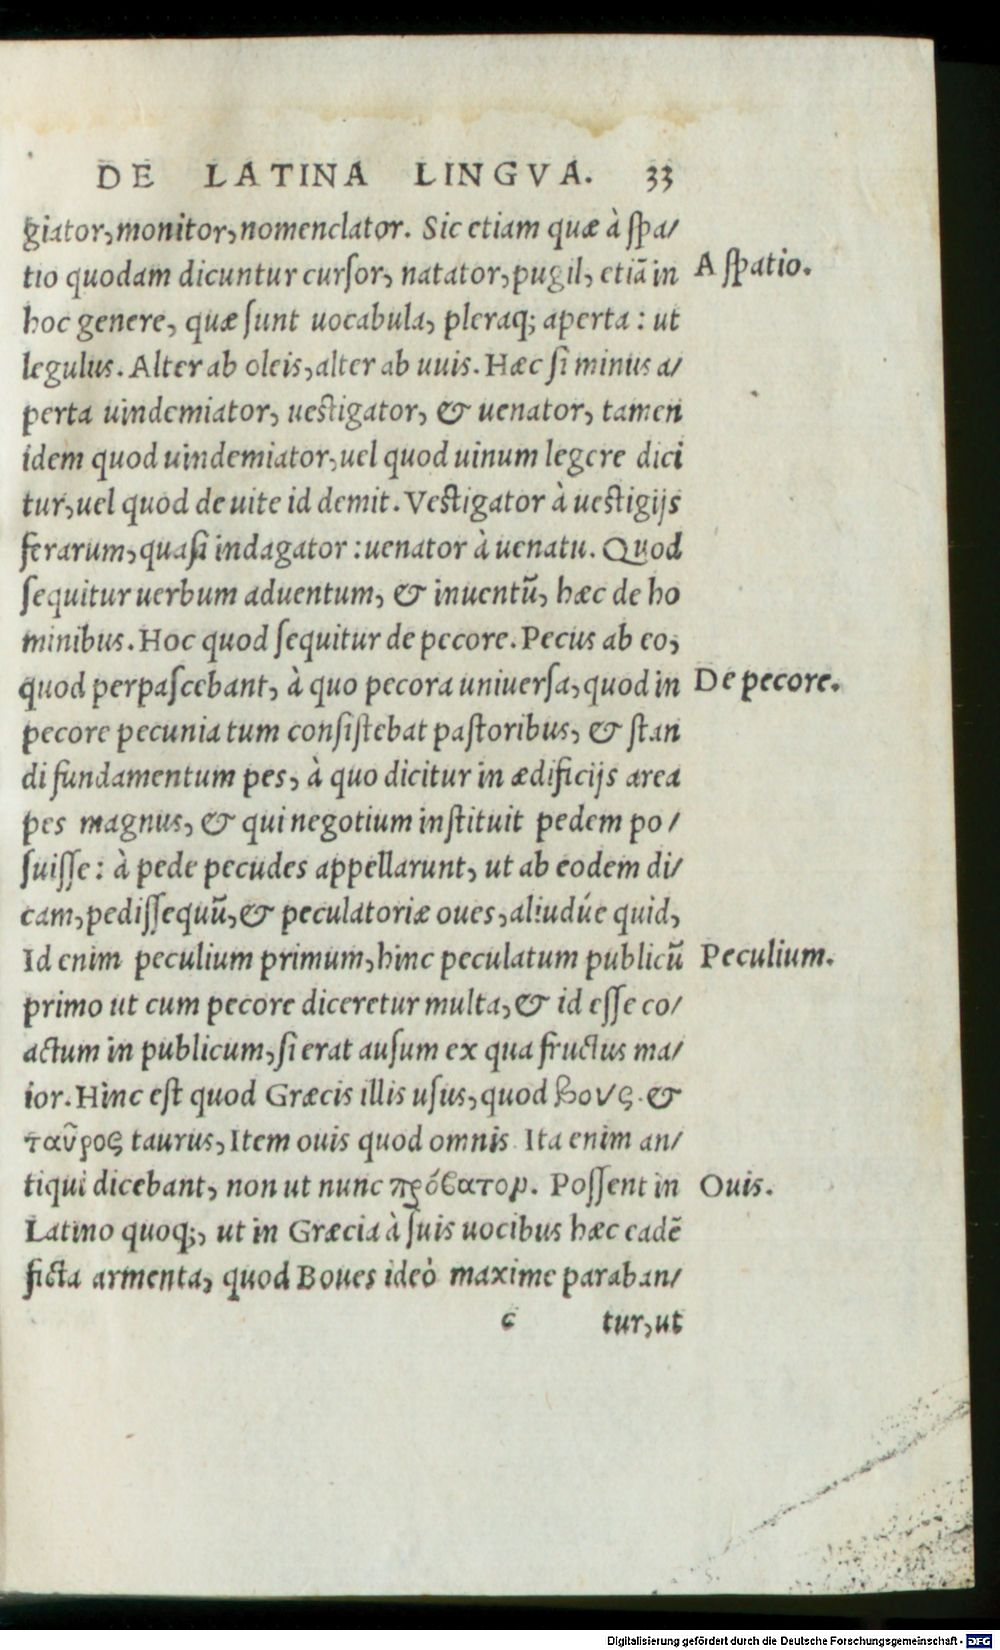 DE LATINA LINGVA. 33
giator, monitor, nomenclator. Sic etiam quæ à spa/
tio quodam dicuntur cursor, natator, pugil, etiā in
A spatio.
hoc genere, quæ sunt uocabula, pleraq; aperta : ut
legulus. Alter ab oleis, alter ab uuis. Hæc si minus a/
perta uindemiator, uestigator, & uenator, tamen
idem quod uindemiator, uel quod uinum legere dici
tur, uel quod de uite id demit. Vestigator à uestigijs
ferarum, quasi indagator : uenator à uenatu. Quod
sequitur uerbum aduentum, & inuentū, hæc de ho
minibus. Hoc quod sequitur de pecore. Pecus ab eo,
quod perpascebant, à quo pecora uniuersa, quod in
De pecore.
pecore pecunia tum consistebat pastoribus, & stan
di fundamentum pes, à quo dicitur in ædificijs area
pes magnus, & qui negotium instituit pedem po/
suisse : à pede pecudes appellarunt, ut ab eodem di/
cam, pedissequū, & peculatoriæ oues, aliudúe quid,
Id enim peculium primum, hinc peculatum publicū
Peculium.
primo ut cum pecore diceretur multa, & id esse co/
actum in publicum, si erat ausum ex qua fructus ma/
ior. Hinc est quod Græcis illis usus, quod βους. &
ταῦρος taurus, Item ouis quod omnis Ita enim an/
tiqui dicebant, non ut nunc πρόβατορ. Possent in
Ouis.
Latino quoq;, ut in Græcia à suis uocibus hæc eadē
ficta armenta, quod Boues ideò maxime paraban/
c tur, ut
Digitalisierung gefördert durch die Deutsche Forschungsgemeinschaft - DFG